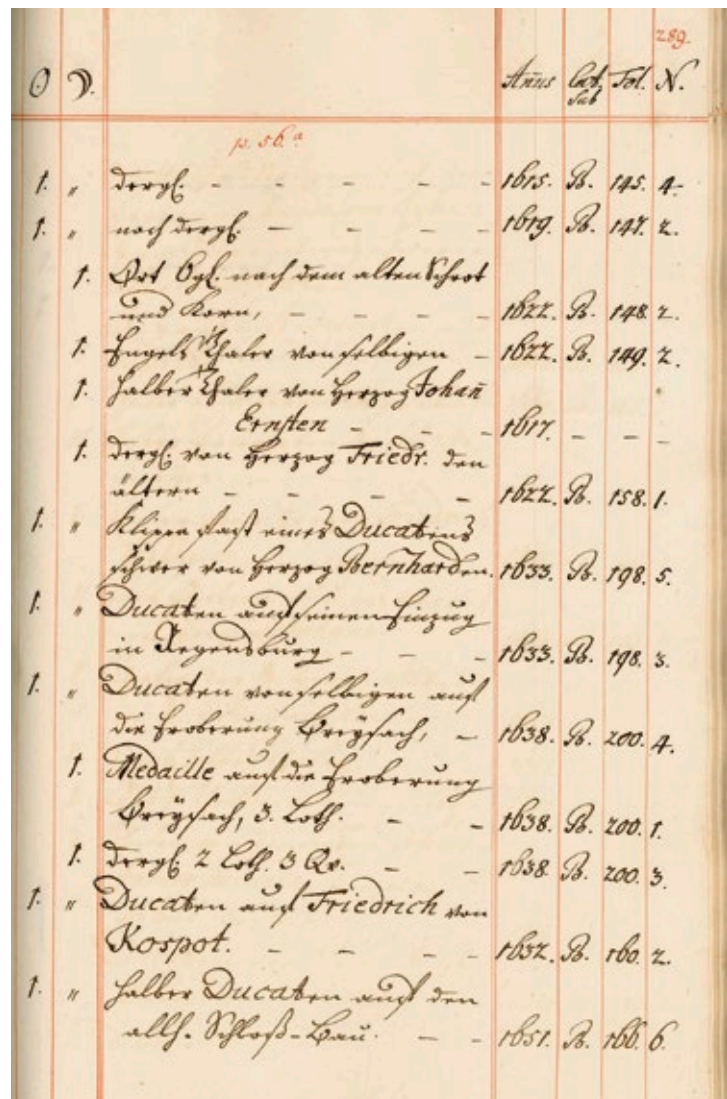 289.
☉ ☽. Annus Cat. Tab Fol. N.
p. 56.a
1. " dergl. - - - - - 1615. B. 145. 4.
1. " noch dergl. - - - - 1619. B. 147. 2.
1. Ort Ggl. nach dem alten Schrot
und Korn, - - - - 1622. B. 148. 2.
1. Engels Thaler von selbigen - 1622. B. 149. 2.
1. halber Thaler von Herzog Johann
Ernsten - - - 1617. - - -
1. dergl. von Herzog Friedr. den
ältern - - - - 1622. B. 158. 1.
1. " Klippe fast eines Ducatens
schwer von Herzog Bernharden. 1633. B. 198. 5.
1. " Ducaten auf seinen Einzug
in Regensburg - - - 1633. B. 198. 3.
1. " Ducaten von selbigen auf
die Eroberung Breysach, - 1638. B. 200. 4.
1. Medaille auf die Eroberung
Breysach, 3. Loth. - - 1638. B. 200. 1.
1. dergl. 2 Loth. 3 Qv. - - 1638 B. 200. 3.
1. " Ducaten auf Friedrich von
Kospot. - - - - 1632. B. 160. 2.
1. " halber Ducaten auf den
allh. Schloß-Bau. - - 1651. B. 166. 6.